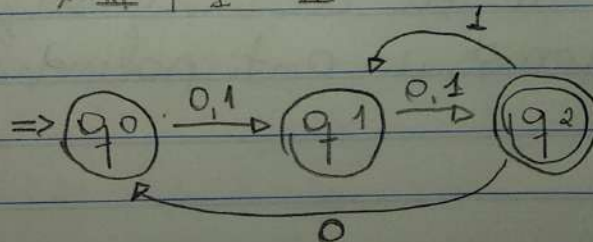 1
=> q0 0,1 q1 0,1 q2
0